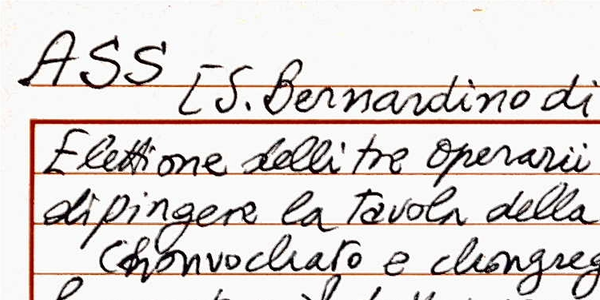 ASS [S. Bernardino di
Elettione delli tre operarii
dipingere la tavola della
Chonvochato e chongreg